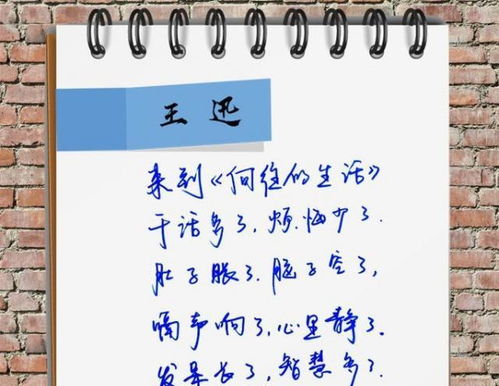 王迅
来到《向往的生活》
干活多了，烦恼少了．
肚子胀了．脑子空了，
嗝声响了，心里静了．
发呆长了，智慧多了．